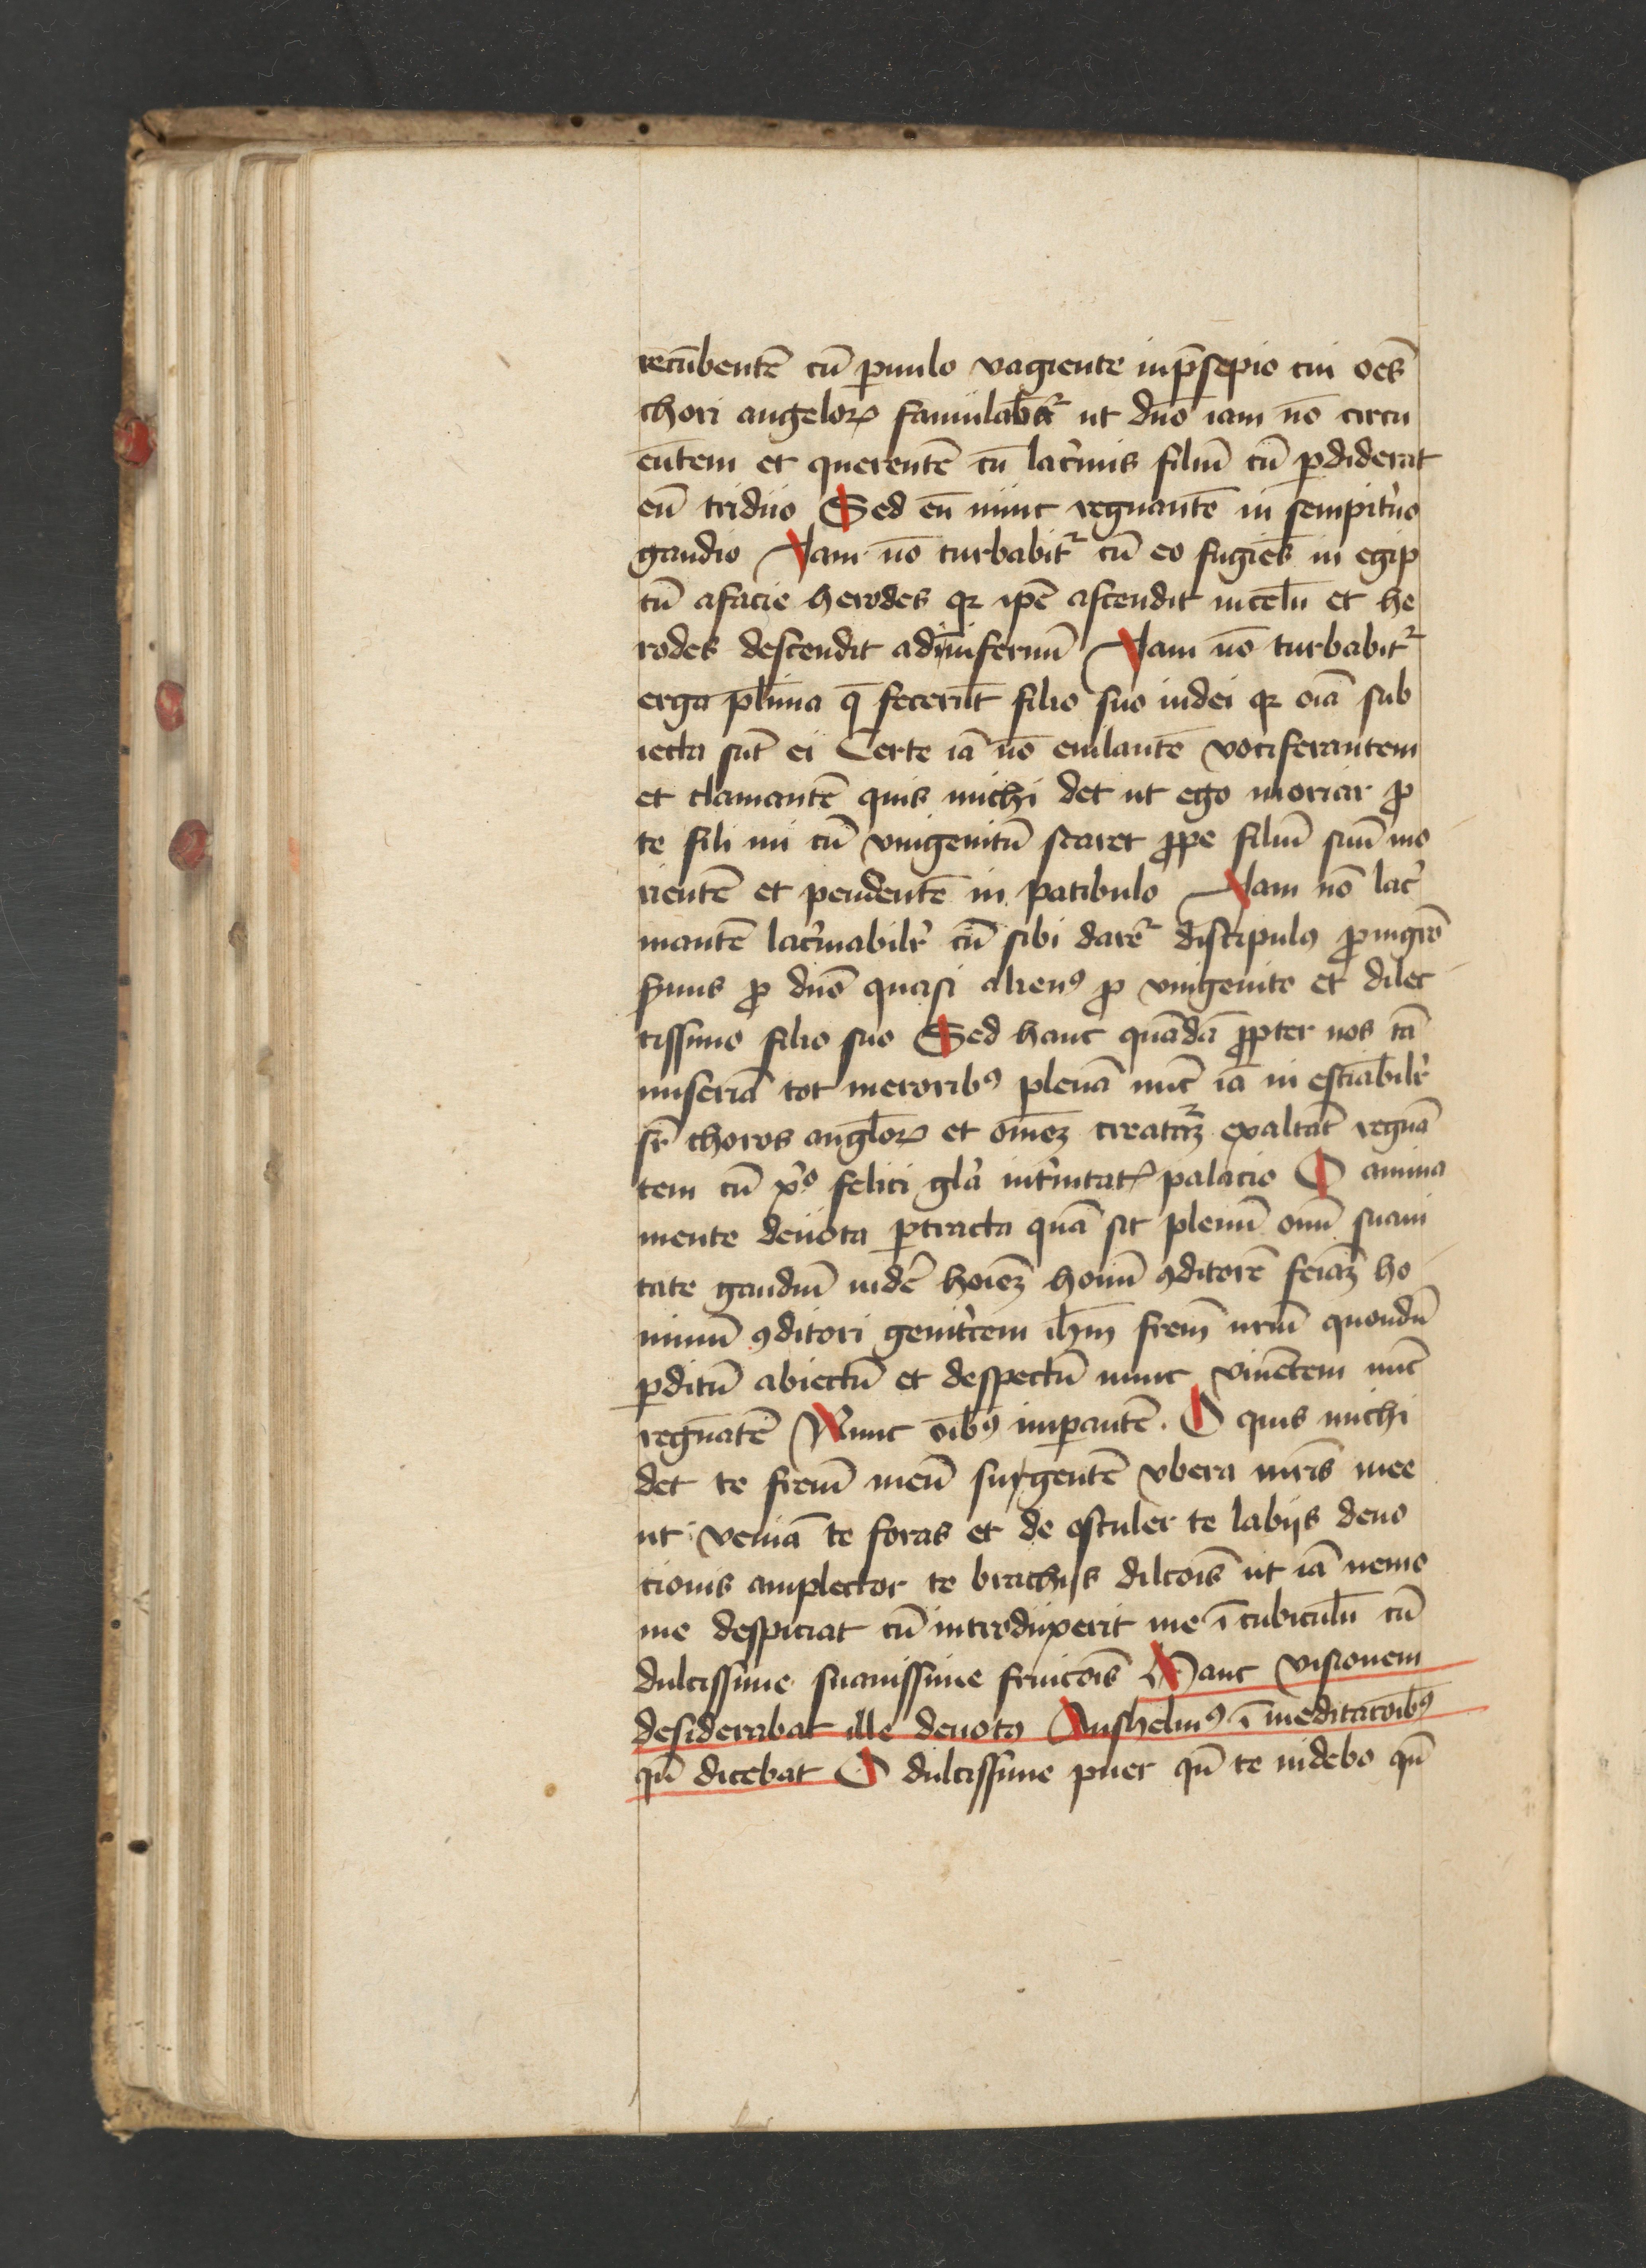 recūbentē cū puulo vagiente inp̄sepio cui oēs
chori angeloꝝ famulabāt᷑ ut dn̄o iam nō circu
euntem et querentē cū lac̓mis filiū cū ꝑdiderat
eū triduo Sed eū nunc regnantē in sempit̓no
gaudio Iam nō turbabit᷑ cū eo fugiēs in egip
tū afacie herodes qꝛ ipē ascendit incelū et he
rodes descendit adinfernū Iam nō turbabit᷑
erga pl̄ima q̄ fecerūt filio suo iudei qꝛ oīa sub
iecta sūt ei Certe iā nō eiulantē vociferantem
et clamantē quis michi det ut ego moriar ꝓ
te fili mi cū vnigenitū staret ꝓpe filiū suū mo
rientē et pendentē in patibulo Iam nō lac̓
mantē lac̓mabilr̓ cū sibi darē᷑ discipulꝰ ꝓ mgr̄o
 ꝓ dn̄o quasi alienꝰ ꝓ vnigenito et dilec
tissimo filio suo Sed hanc quādā ꝓpter nos tā
miseriā tot meroribꝰ plenā nūc iā in estīabilr̓
sr̄ choros angl̄oꝝ et om̄eꝫ creatᷓꝫ exaltāt regnā
tem cū xp̓o felici gl̓a in t̓nitatꝭ palacio O anima
mente deuota ꝑtracta quā sit plenū om̄i suaui
tate gaudiū uidē hoīeꝫ homū ꝯditorē feīaꝫ ho
minū ꝯditori genit̓cem ih̄m frēm nr̄m quondā
ꝑditū abiectū et despectū nunc viuētem nūc
regnātē Nunc oībꝰ imꝑantē. O quis michi
det te frēm meū surgentē vbera mr̄is mee
ut veniā te foras et de osculer te labijs deuo
cionis amplector te brachijs dilcōis ut iā nemo
me despiciat cū introduxerit me ī cubiculū cū
dulcissime suauissime fruicōis Hanc visionem
desiderabat ille deuotꝰ Anshelmꝰ ī meditacōibꝰ
qn̄ dicebat O dulcissime puer qn̄ te uidebo qn̄